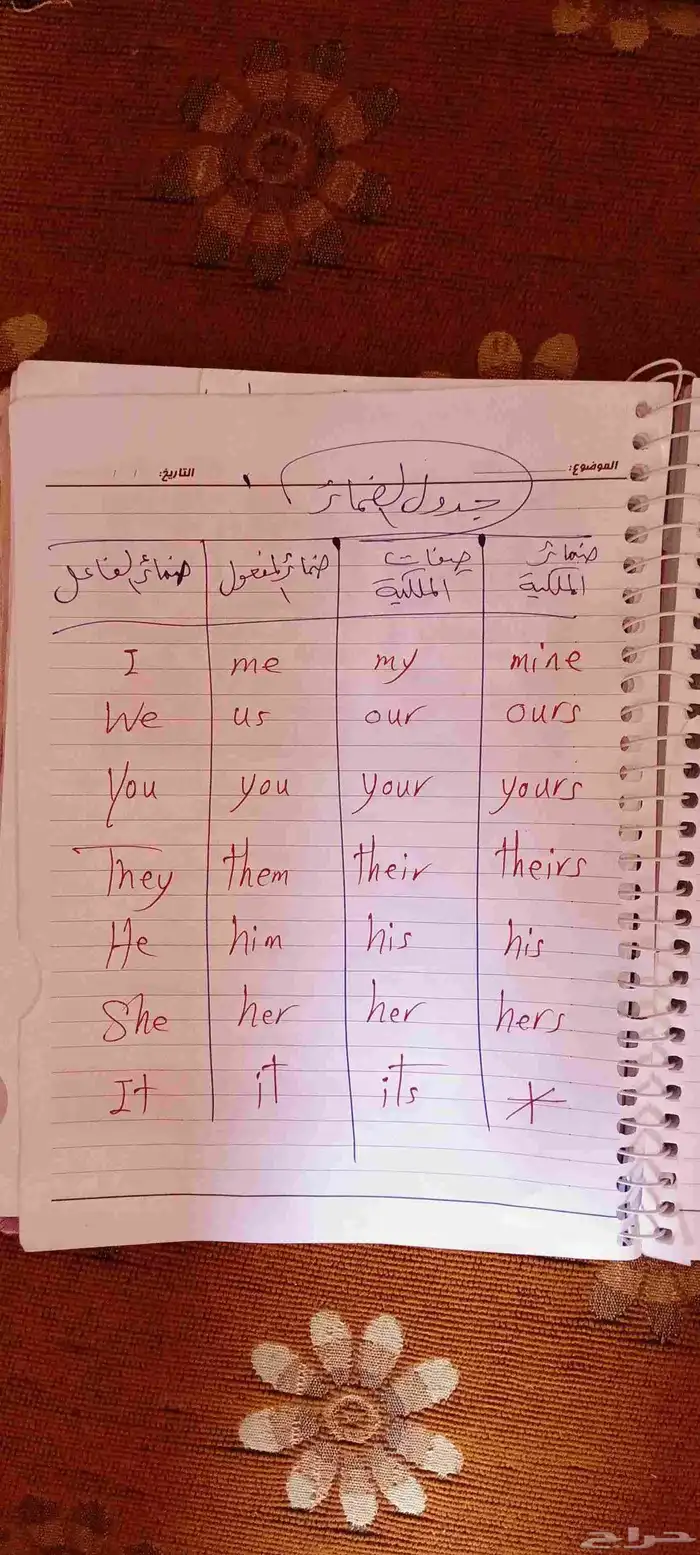 الموضوع: التاريخ: / /
جدول الضمائر
ضمائر الفاعل ضمائر المفعول صفات الملكية ضمائر الملكية
I me my mine
We us our ours
You you your yours
They them their theirs
He him his his
She her her hers
It it its *
حراج